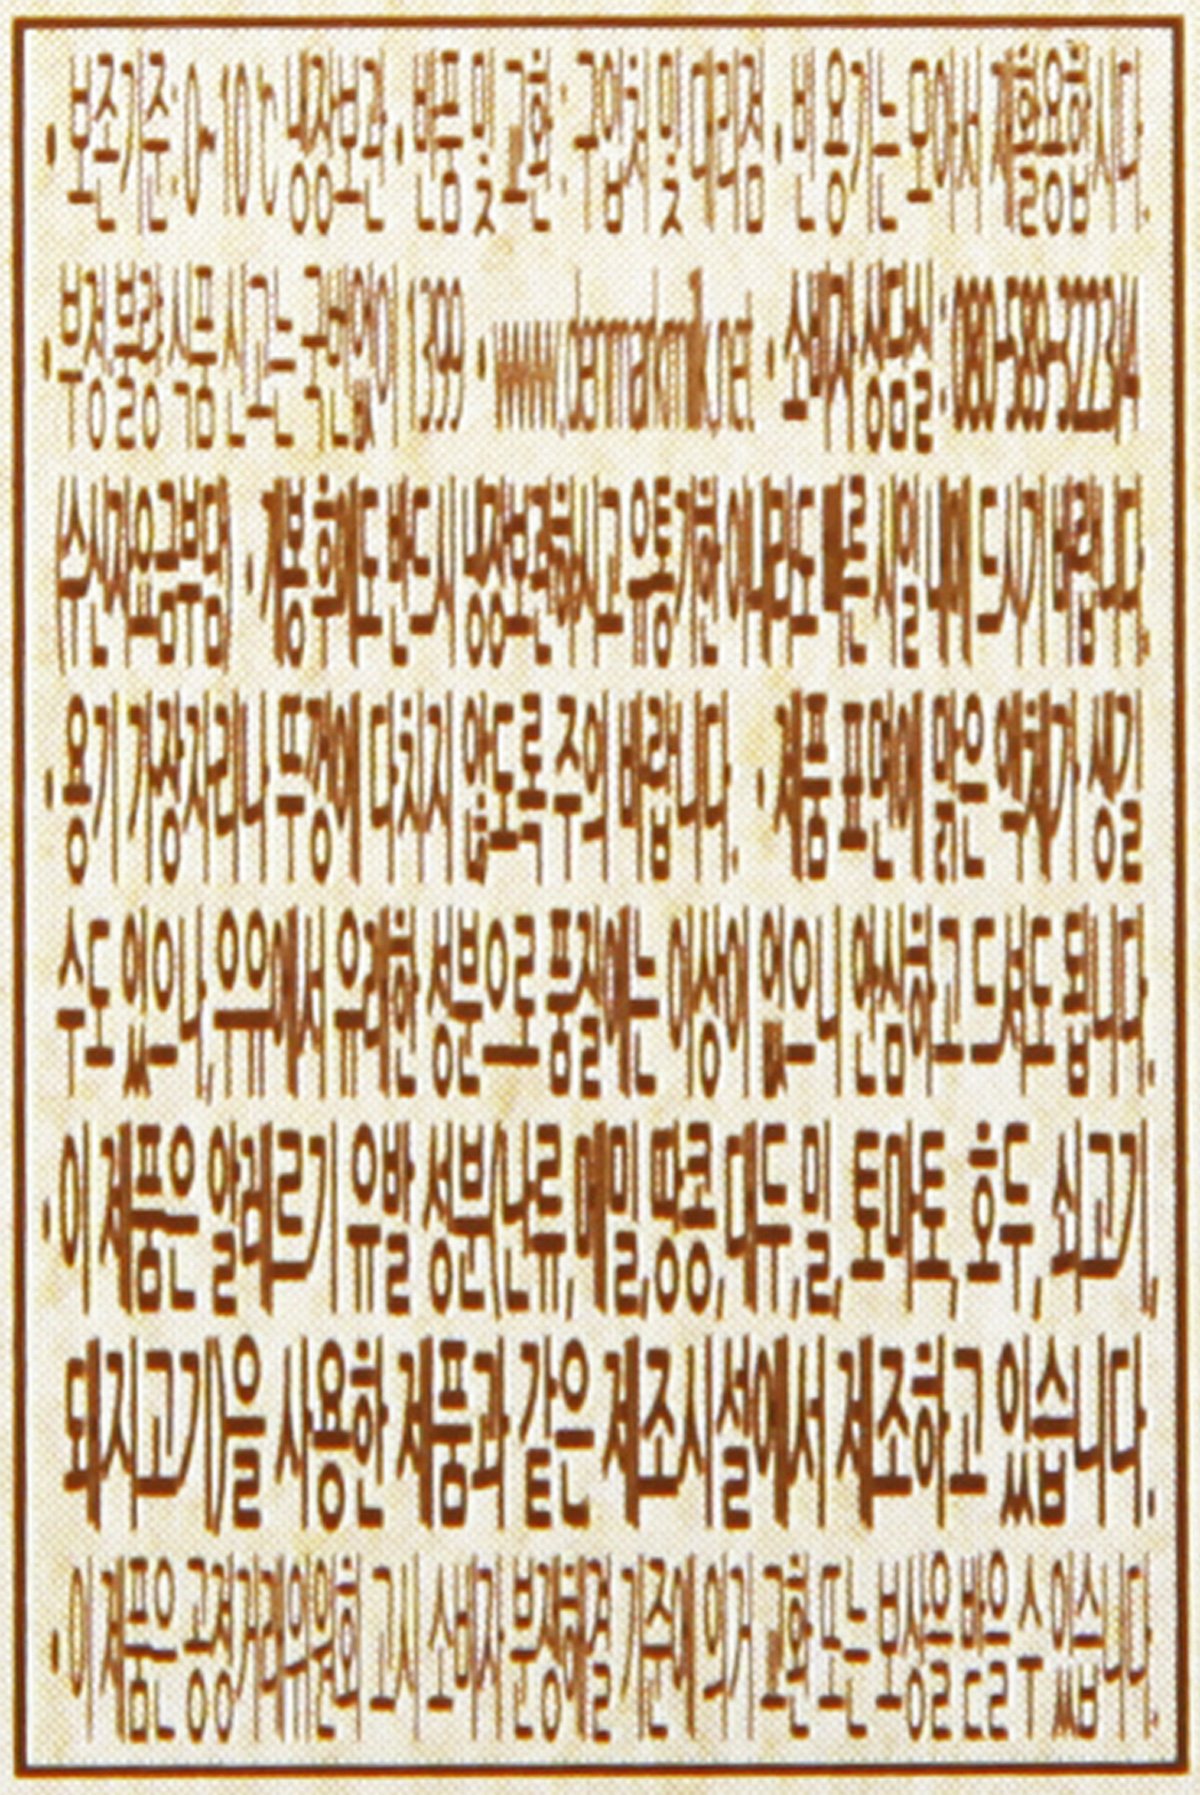 · 보존기준:0~10℃ 냉장보관 · 반품 및 교환: 구입처 및 대리점 · 빈 용기는 모아서 재활용합시다.
· 부정·불량식품 신고는 국번없이 1399 · www.denmarkmilk.net · 소비자 상담실:
수신자요금부담) · 개봉 후에도 반드시 냉장보관하시고 유통기한 이내라도 빠른 시일내에 드시기 바랍니다.
· 용기 가장자리나 뚜껑에 다치지 않도록 주의 바랍니다. · 제품 표면에 맑은 액체가 생길
수도 있으나, 우유에서 유래한 성분으로 품질에는 이상이 없으니 안심하고 드셔도 됩니다.
· 이 제품은 알레르기 유발 성분(난류, 메밀, 땅콩, 대두, 밀, 토마토, 호두, 쇠고기,
돼지고기)을 사용한 제품과 같은 제조시설에서 제조하고 있습니다.
· 이 제품은 공정거래위원회 고시 소비자 분쟁해결 기준에 의거 교환 또는 보상을 받을 수 있습니다.